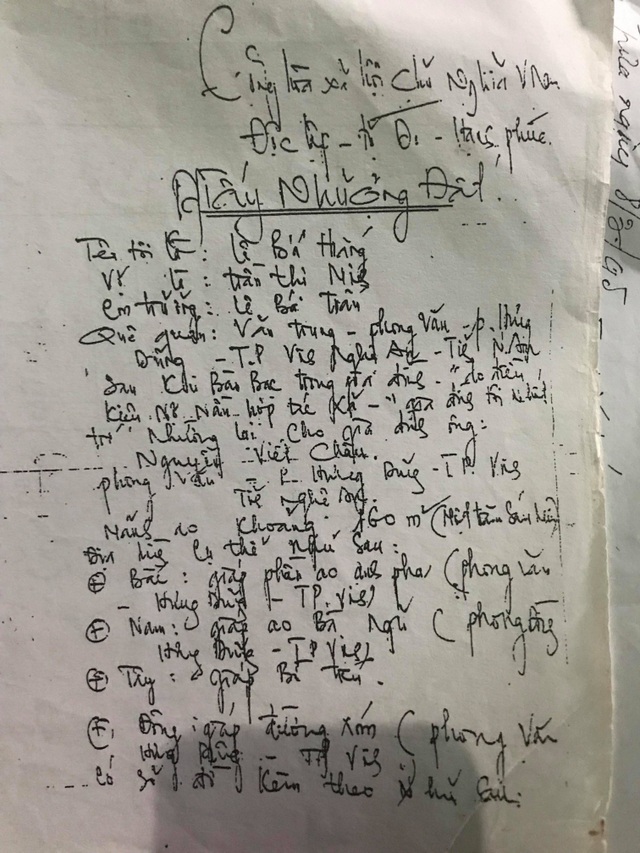 Cộng hòa xã hội chủ Nghĩa V Nam
Độc lập - tự Do - Hạnh phúc.
Giấy Nhường Đất
Tên tôi là: Lê Bá Thắng
Vợ là: trần thị
Con trưởng: Lê Bá Trần
Quê quán: Văn trung - phong Văn - p. Hưng
Dũng - T.P Vinh Nghệ An - Tỉnh N.An
Sau khi Bàn Bạc trong gia đình - do điều
Kiện Nợ Nần hợp tác Xã - gia đình tôi nhất
trí Nhường lại cho gia đình ông:
Nguyễn Viết Châu.
phong Văn - P. Hưng Dũng - TP. Vinh
Tỉnh Nghệ An.
ao khoảng: 160 m² (Một trăm sáu mươi)
cụ thể như sau:
+ Bắc: giáp phần ao anh pha (phong văn
- Hưng Dũng - TP. Vinh)
+ Nam: giáp ao Bà Ngũ (phong
Hưng Dũng - TP Vinh)
+ Tây: giáp Bà
+ Đông: giáp đường xóm (phong Văn
Hưng Dũng - TP Vinh
Có sơ đồ kèm theo như sau:
thửa ngày 8/8/95